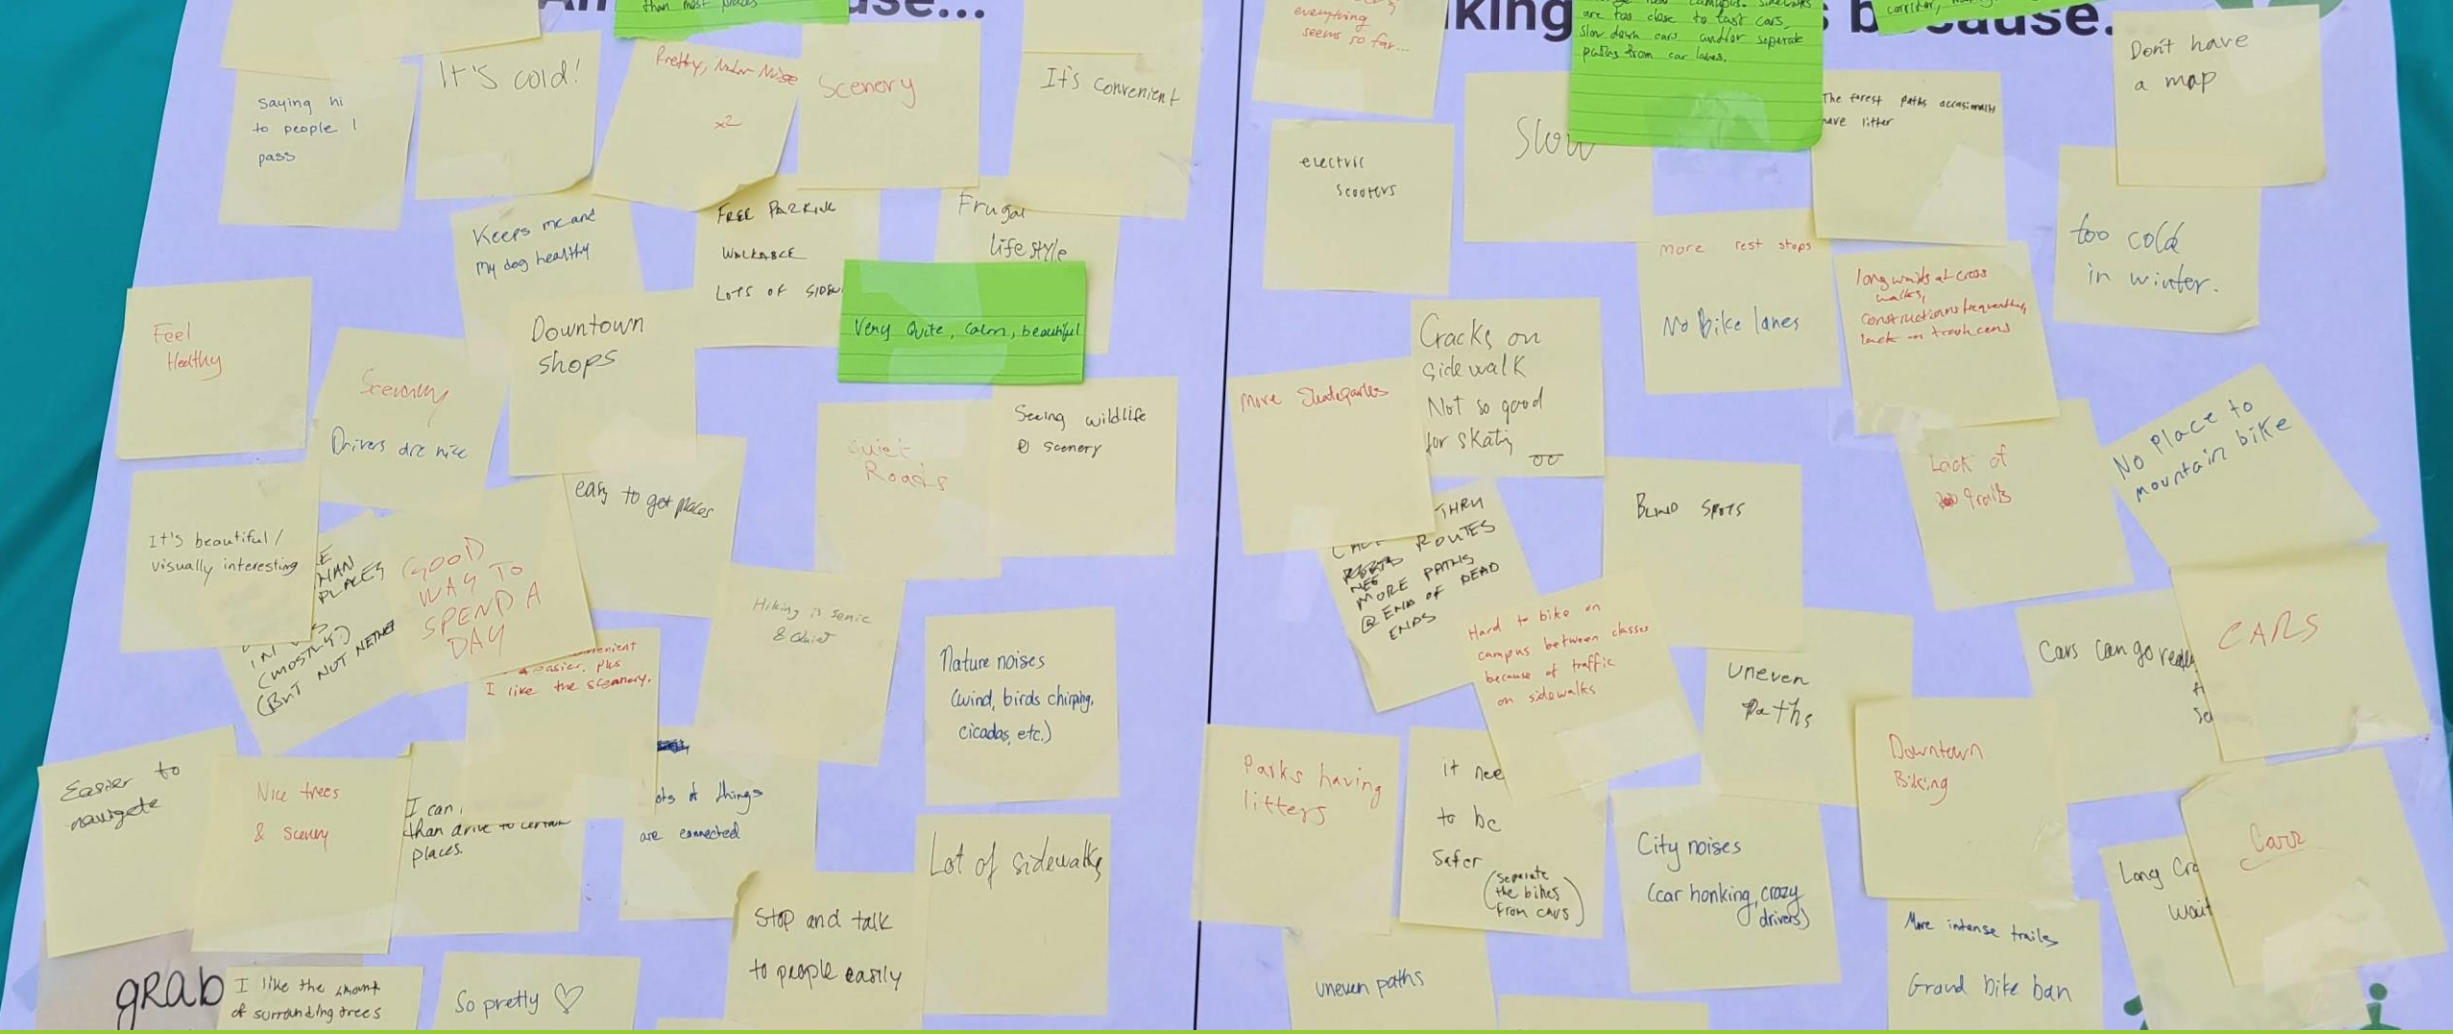 than most places
use...
Saying hi
to people I
pass
It's cold!
Pretty, Natur Noise
x2
Scenery
It's convenient
Keeps me and
my dog healthy
FREE PARKING
WALKABLE
LOTS OF SIDEW
Frugal
lifestyle
Very Quite, Calm, beautiful
Feel
Healthy
Scenery
Drivers are nice
Downtown
shops
easy to get places
Quiet
Roads
Seeing wildlife
& scenery
It's beautiful/
visually interesting
PLACES
(MOSTLY)
(BUT NOT
GOOD
WAY TO
SPEND A
DAY
easier, plus
I like the sceanery.
Hiking is senic
& Quiet
Nature noises
(wind, birds chirping,
cicadas, etc.)
Easier to
navigate
Nice trees
& scenery
I can
than drive to certain
places.
ots of things
are connected
Lot of sidewalks
Stop and talk
to people easily
grab
I like the amount
of surrounding trees
So pretty ♡
king
because...
everything
seems so far...
are too close to fast cars,
slow down cars and/or seperate
paths from car lanes.
corridor,
Don't have
a map
electric
scooters
Slow
The forest paths occasionally
have litter
too cold
in winter.
more rest stops
No Bike lanes
long waits at cross
walks,
construction frequently,
lack on trash cans
more Skateparks
Cracks on
sidewalk
Not so good
for skating
THRU
ROUTES
MORE PATHS
@ END OF DEAD
ENDS
BLIND SPOTS
Lack of
trails
No place to
mountain bike
Hard to bike on
campus between classes
because of traffic
on sidewalks
uneven
Paths
Cars can go really
CARS
Parks having
litters
it nee
to be
safer
(separate
the bikes
from cars)
City noises
(car honking, crazy
drivers)
Downtown
Biking
Cars
Long Cro
wait
More intense trails
Grand bike ban
uneven paths